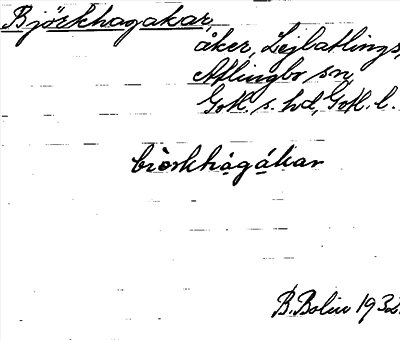 Björkhagakar,
åker, Lejbatlings,
Atlingbo sn,
Gotl. s. hd, Gotl. l.
bìorkhágákar
B. Bolin 1932.